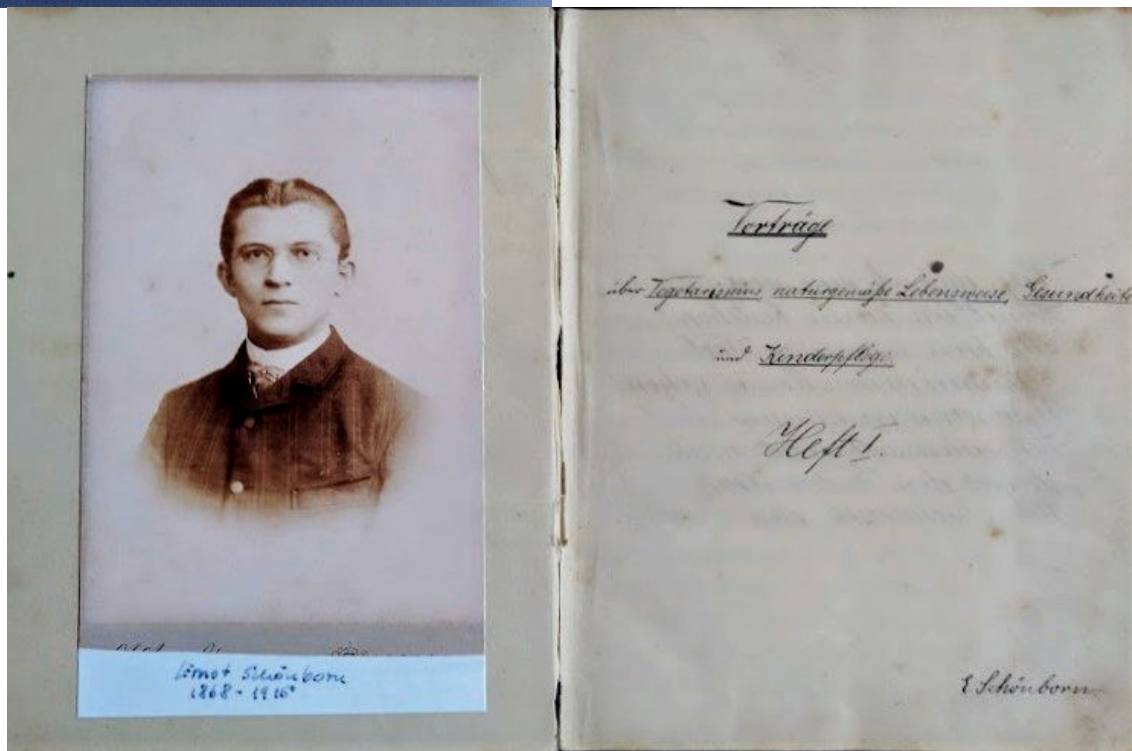 Ernst Schönborn
1868 - 1916
Vorträge
über Vegetarismus, naturgemäße Lebensweise, Gesundheits
und Kinderpflege.
Heft I.
E Schönborn